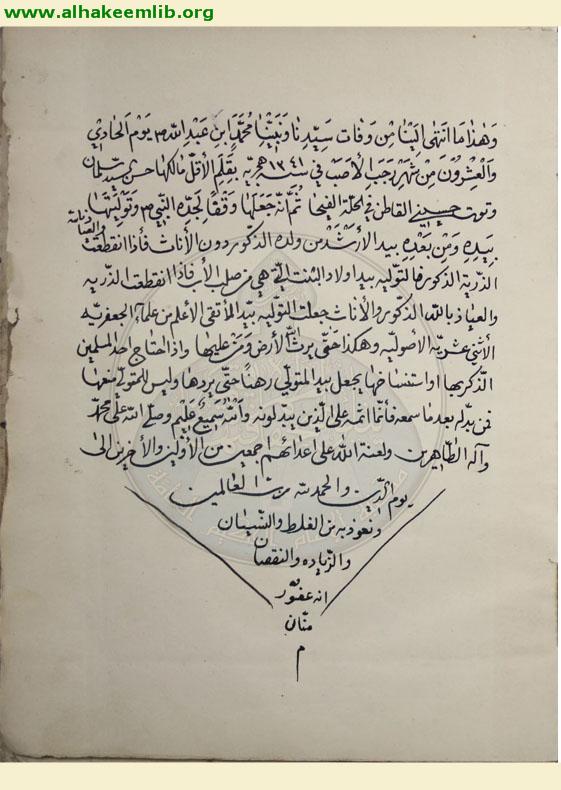 www.alhakeemlib.org
وَهٰذا مَا انتهى الَيْنٰا مِنْ وفات سَيّدِنٰا وَنَبيّنٰا مُحمَّد ابن عَبْدِ اللّٰه ص يَوْم الحٰادي
وَالْعِشْرُونَ مِنْ شَهْرِ رَجَبِ الأصَبّ في سنة ١٣٤١ هجريه بِقَلَمِ الأقل مالكها حسن سيد سلمان
حسيني القاطن في الحلّة الفيحا ثُمَّ أنّه جَعَلَها وَقفًا لجدّه النبي ص وَتوليتها
بيدِه وَمن بَعْدِه بيد الأرْشَدْ من ولده الذكور دون الأناث فأذا انقطعت والعياذ بالله
الذرية الذكور فالتوليه بيد اولاد البنت الّتي هي من صلب الأب فأذا انقطعت الذريه
والعياذ باللّه الذكور والأناث جعلت التوليه بيد الأتقى الأعلم من علمآء الجعفريّه
الأثنى عشريّه الأصوليّه وهكذا حَتّى يرث اللّه الأرض وَمَن عليها واذا احتاج احد المسلمين
الذكر بها او استنساخها يجعل بيد المتولّي رهنًا حتّى يردها وليس للمتولّي منعها
فمن بدّله بعد ما سمعه فأنّما اثمه على الّذين يبدلونه وَاللّٰه سَميعٌ عَليمْ وصلّى اللّه على محمّد
وآله الطّاهرين ولعنة اللّه على اعدائهم اجمعين من الأوّلين والأخرين الى
يوم الدّين والحمد للّه ربّ العٰالمين
ونعوذ به من الغلط والنّسيان
والزّياده والنقصان
انه غفور
منّان
م